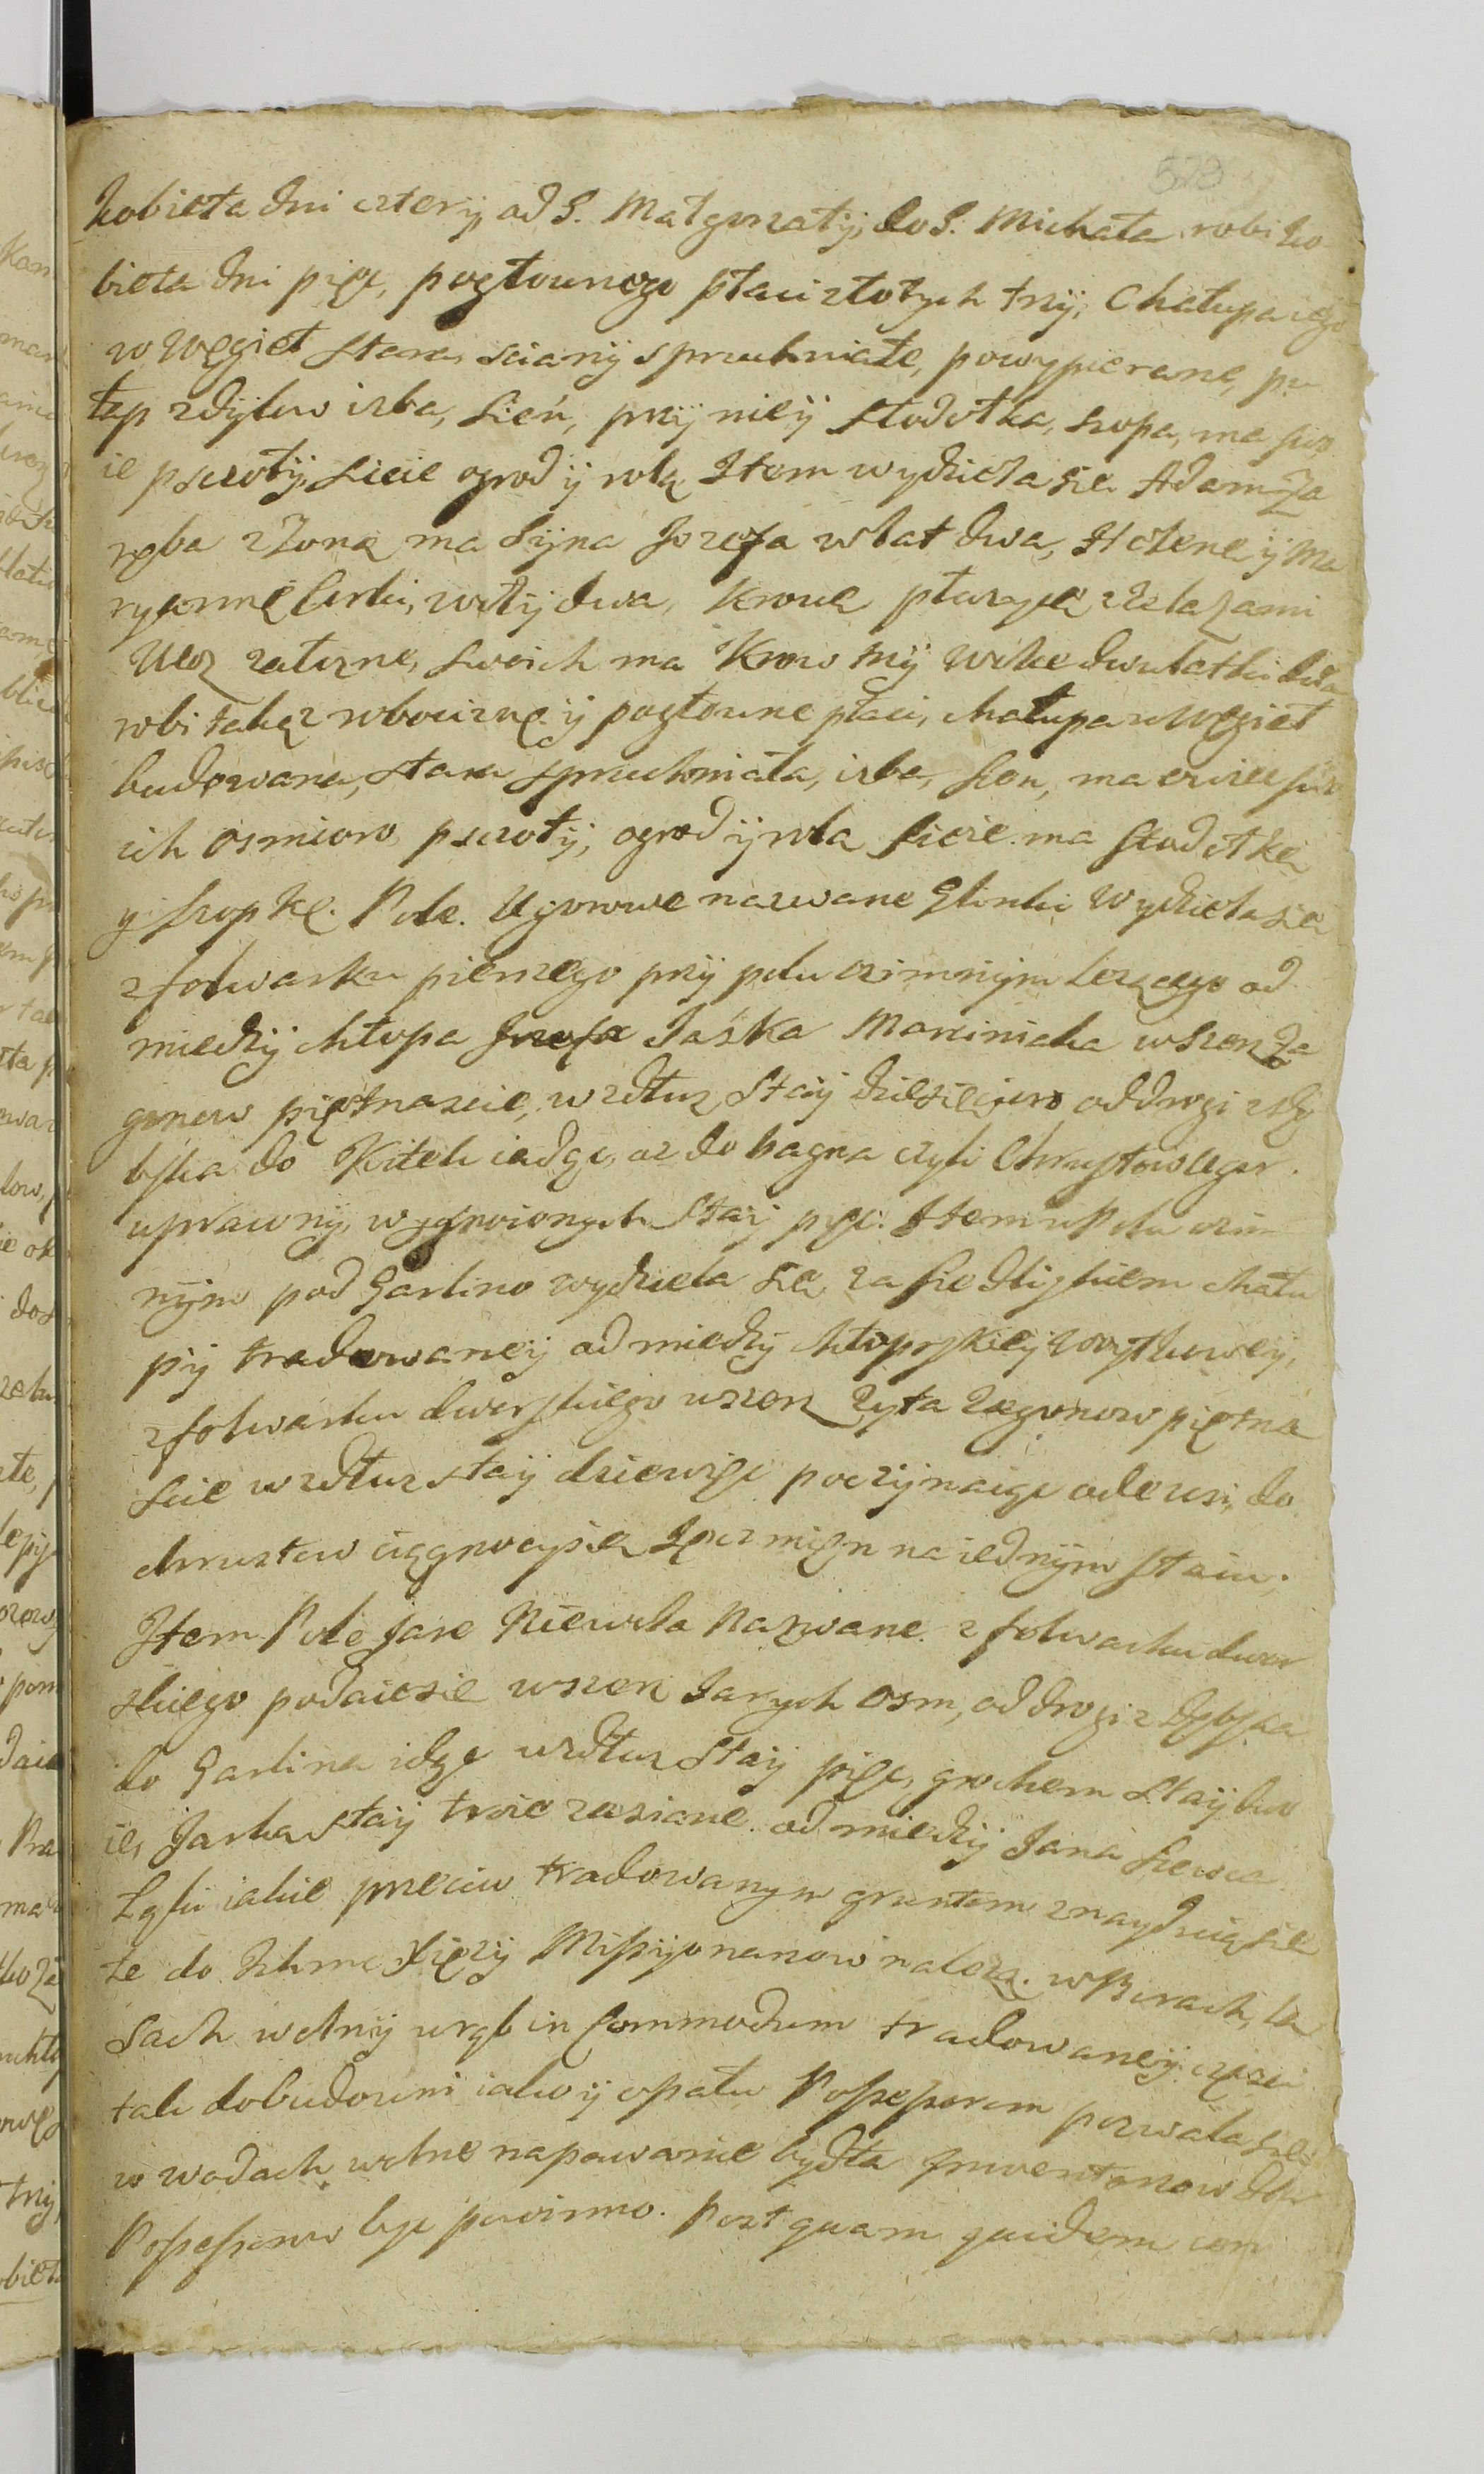 523
kobieta dni cztery, od S. Małgorzaty, do S. Michała robi ko
bieta dni pięć, pogłownego płaci złotych trzy, Chałupa iego
w Węgieł stara sciany spruchniałe, powypierane, pu
łap z dylow izba, Sień, przy niey stodołka, szopa, ma
ie pszczoły, sieie ogrod y rolą Item wydziela się Adam Za
ręba z Zoną ma Syna Jozefa w lat dwa, Helenę y Ma
ryannę Corki, woły dwa, Krowę płużycę z Zelazami
Woz załozne, swoich ma Krow trzy Wolce dwuletki
robi takąz robociznę y pogłowne płaci, chałupa w Węgieł
budowana, stara spruchniała, izba, sień, ma
ich osmioro, pszczoły, ogrod y rola sieie. ma stodołkę
y szopkę. Pole. Ugorowe nazwane Glinki Wydziela się
z folwarku pierszego przy polu ozimnym lezącego od
miedzy chłopa Jozefa Jaśka Marciniaka wszerz Za
gonow piętnascie, wzdłuz Stay dziesięcioro od drogi z Dę
bska do Kitek iadąc, az do bagna czyli Chrustow
uprawny, wygnoionych Stay pięć. Item w Polu ozim
nym pod Garlino wydziela się za siedliskiem chału
py tradowaney od miedzy chłopskiey Woytkowey,
z folwarku dworskiego wszerz Zyta Zagonow piętna
scie wzdłuz stay dziewięć poczynaiąc ode wsi, do
chrustow ciągnący się na iednym staiu.
Item Pole Jare Niewola Nazwane z folwarku dwor
skiego podaie sie wszerz Jarych osm, od drogi z Dębska
do Garlina idąc wzdłuz Stay pięć, grochem Stay dwo
ie, Jarka stay troie zasiane od miedzy Jana
Łąki iakie przeciw tradowanym gruntem znayduią sie
te do Ichmc Xięzy Missyonarzow nalezą. w Borach, La
sach wolny wrąb in Commodum tradowaney częsci
tak do budowni iako y opału Possessorom pozwala sie,
w wodach wolne napawanie bydła Inwentarzow
Possessorow być powinno. Postquam quidem